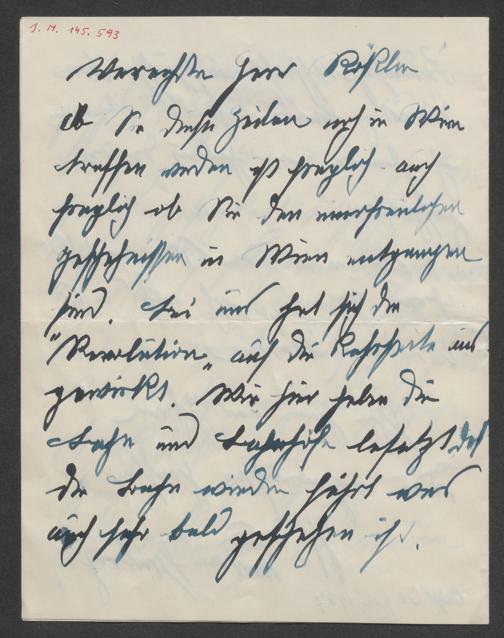 J. N. 145.593
Verehrter Herr Rößler
ob Sie diese Zeilen noch in Wien
treffen werden ist fraglich auch
fraglich ob Sie den unerfreulichen
Geschehnissen in Wien entgangen
sind. Bei uns hat sich die
"Revolution" auf die Kehrseite aus
gewirkt. Wir hier haben die
Bahn und Bahnhöfe besetzt daß
die Bahn wieder fährt was
auch sehr bald geschehen ist.